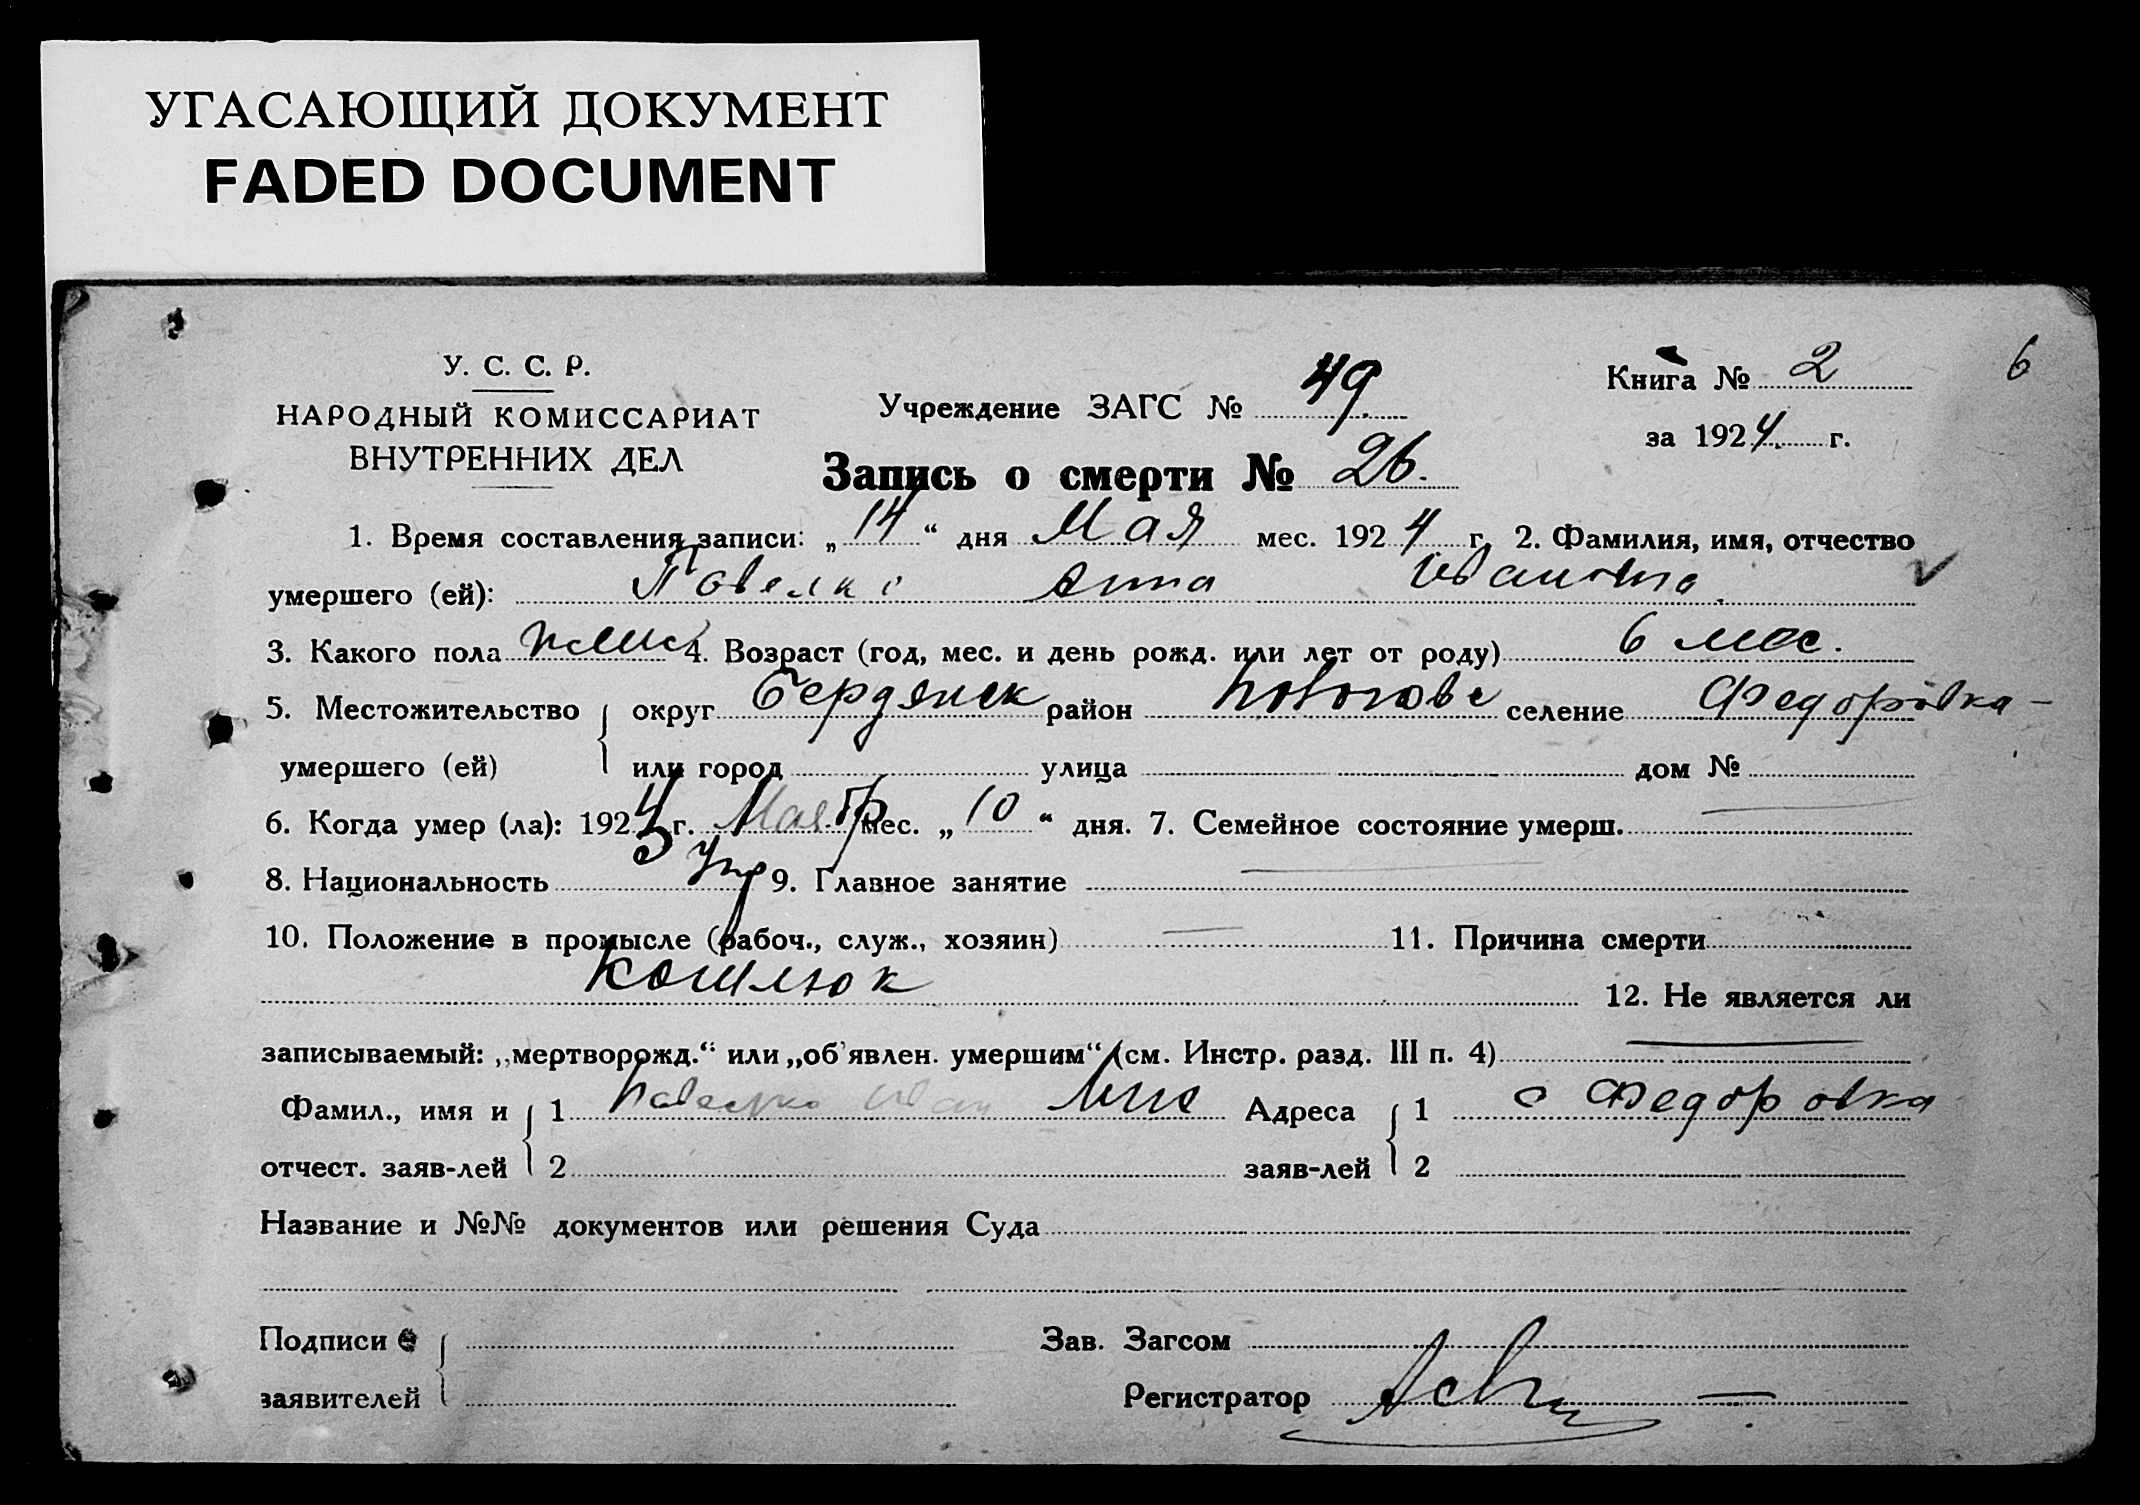 УГАСАЮЩИЙ ДОКУМЕНТ
FADED DOCUMENT
6
У. С. С. Р.
НАРОДНЫЙ КОМИССАРИАТ
ВНУТРЕННИХ ДЕЛ
Учреждение ЗАГС № 49
Книга № 2
за 1924 г.
Запись о смерти № 26.
1. Время составления записи: „14“ дня Мая мес. 1924 г. 2. Фамилия, имя, отчество
умершего (ей): Анна Ивановна
3. Какого пола 4. Возраст (год, мес. и день рожд. или лет от роду) 6 мес.
5. Местожительство округ Бердянск район селение Федоровка
умершего (ей) или город улица дом №
6. Когда умер (ла): 1924 г. мес. „10“ дня. 7. Семейное состояние умерш.
8. Национальность 9. Главное занятие
10. Положение в промысле (рабоч., служ., хозяин) 11. Причина смерти
Кошлюк
12. Не является ли
записываемый: „мертворожд.“ или „об'явлен. умершим“ (см. Инстр. разд. III п. 4)
Фамил., имя и 1 Адреса 1 с Федоровка
отчест. заяв-лей 2 заяв-лей 2
Название и №№ документов или решения Суда
Подписи Зав. Загсом
заявителей Регистратор